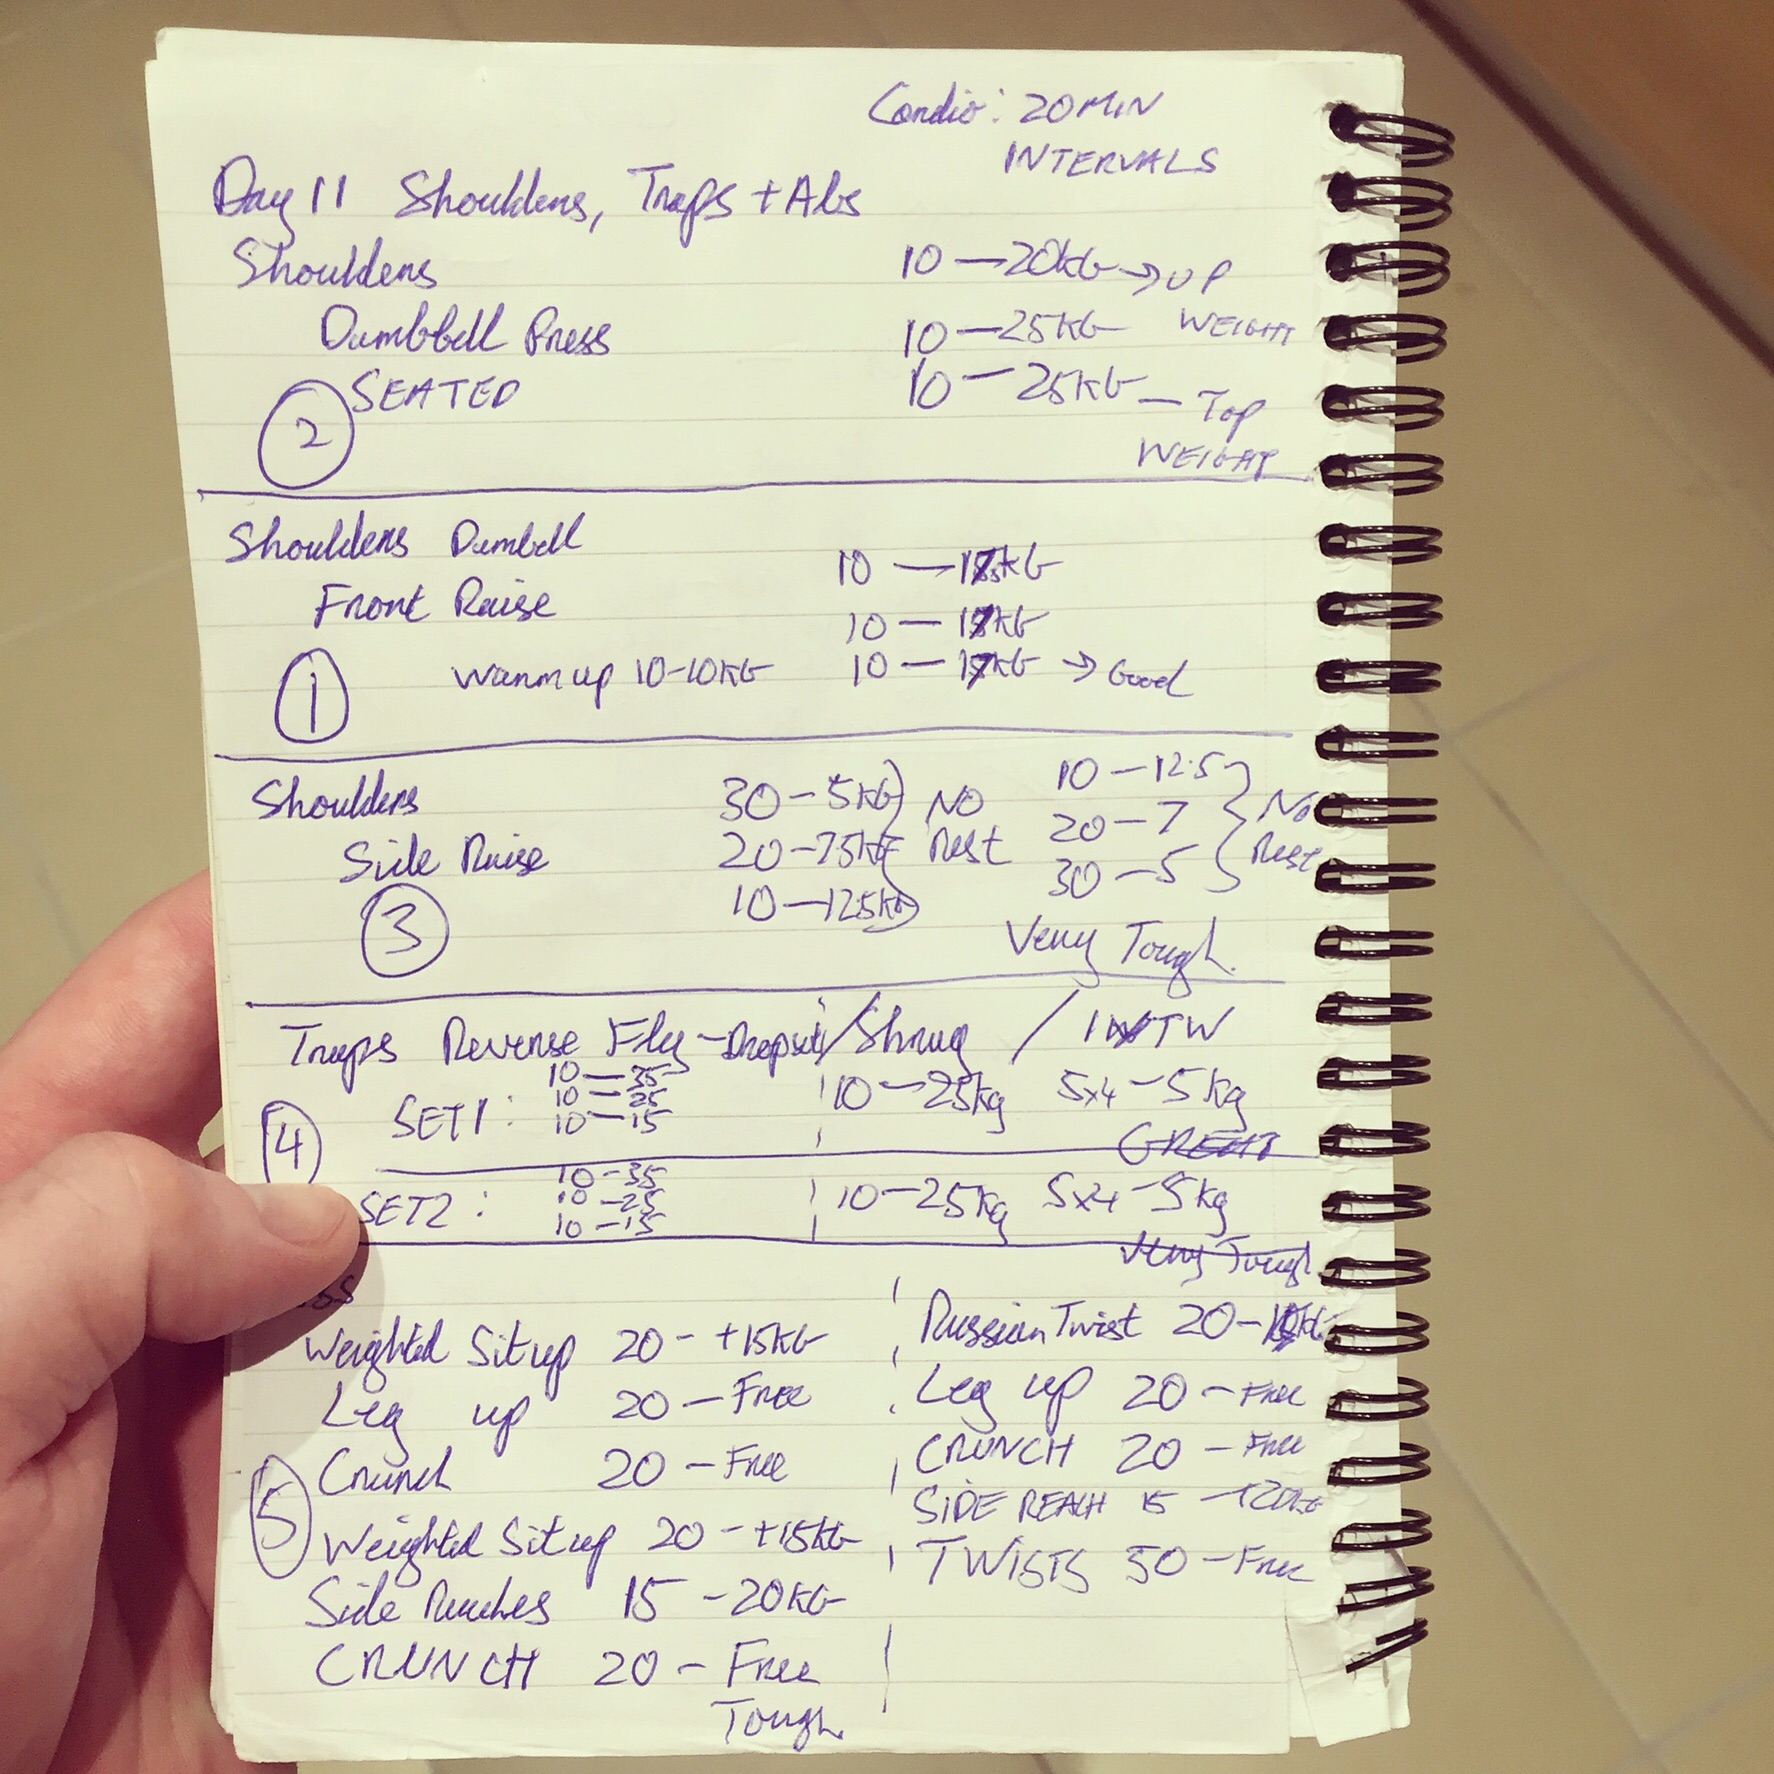 Cardio: 20MIN
INTERVALS
Day 11 Shoulders, Traps + Abs
Shoulders 10 — 20KG → UP
Dumbbell Press 10 — 25KG WEIGHT
SEATED 10 — 25KG — Top
2 WEIGHT
Shoulders Dumbell
Front Raise 10 — KG
10 — 17KG
1 Warm up 10-10KG 10 — 17KG → Good
Shoulders 30 - 5KG NO 10 - 12.5 No
Side Raise 20 - 7.5KG Rest 20 - 7 Rest
3 10 - 12.5KG 30 - 5
Very Tough.
Traps Reverse Fly - Dropset / Shrug / TW
4 SET1: 10 — 35 10 - 25kg 5x4 - 5kg
10 — 25
10 — 15
GREAT
SET2: 10 - 35 10 - 25kg 5x4 - 5kg
10 - 25
10 - 15
Very Tough.
Weighted Sit up 20 - +15KG Russian Twist 20 -
Leg up 20 - Free Leg up 20 - Free
Crunch 20 - Free CRUNCH 20 - Free
5 Weighted Sit up 20 - +15KG SIDE REACH 15 - +20KG
Side Reaches 15 - 20KG TWISTS 50 - Free
CRUNCH 20 - Free
Tough